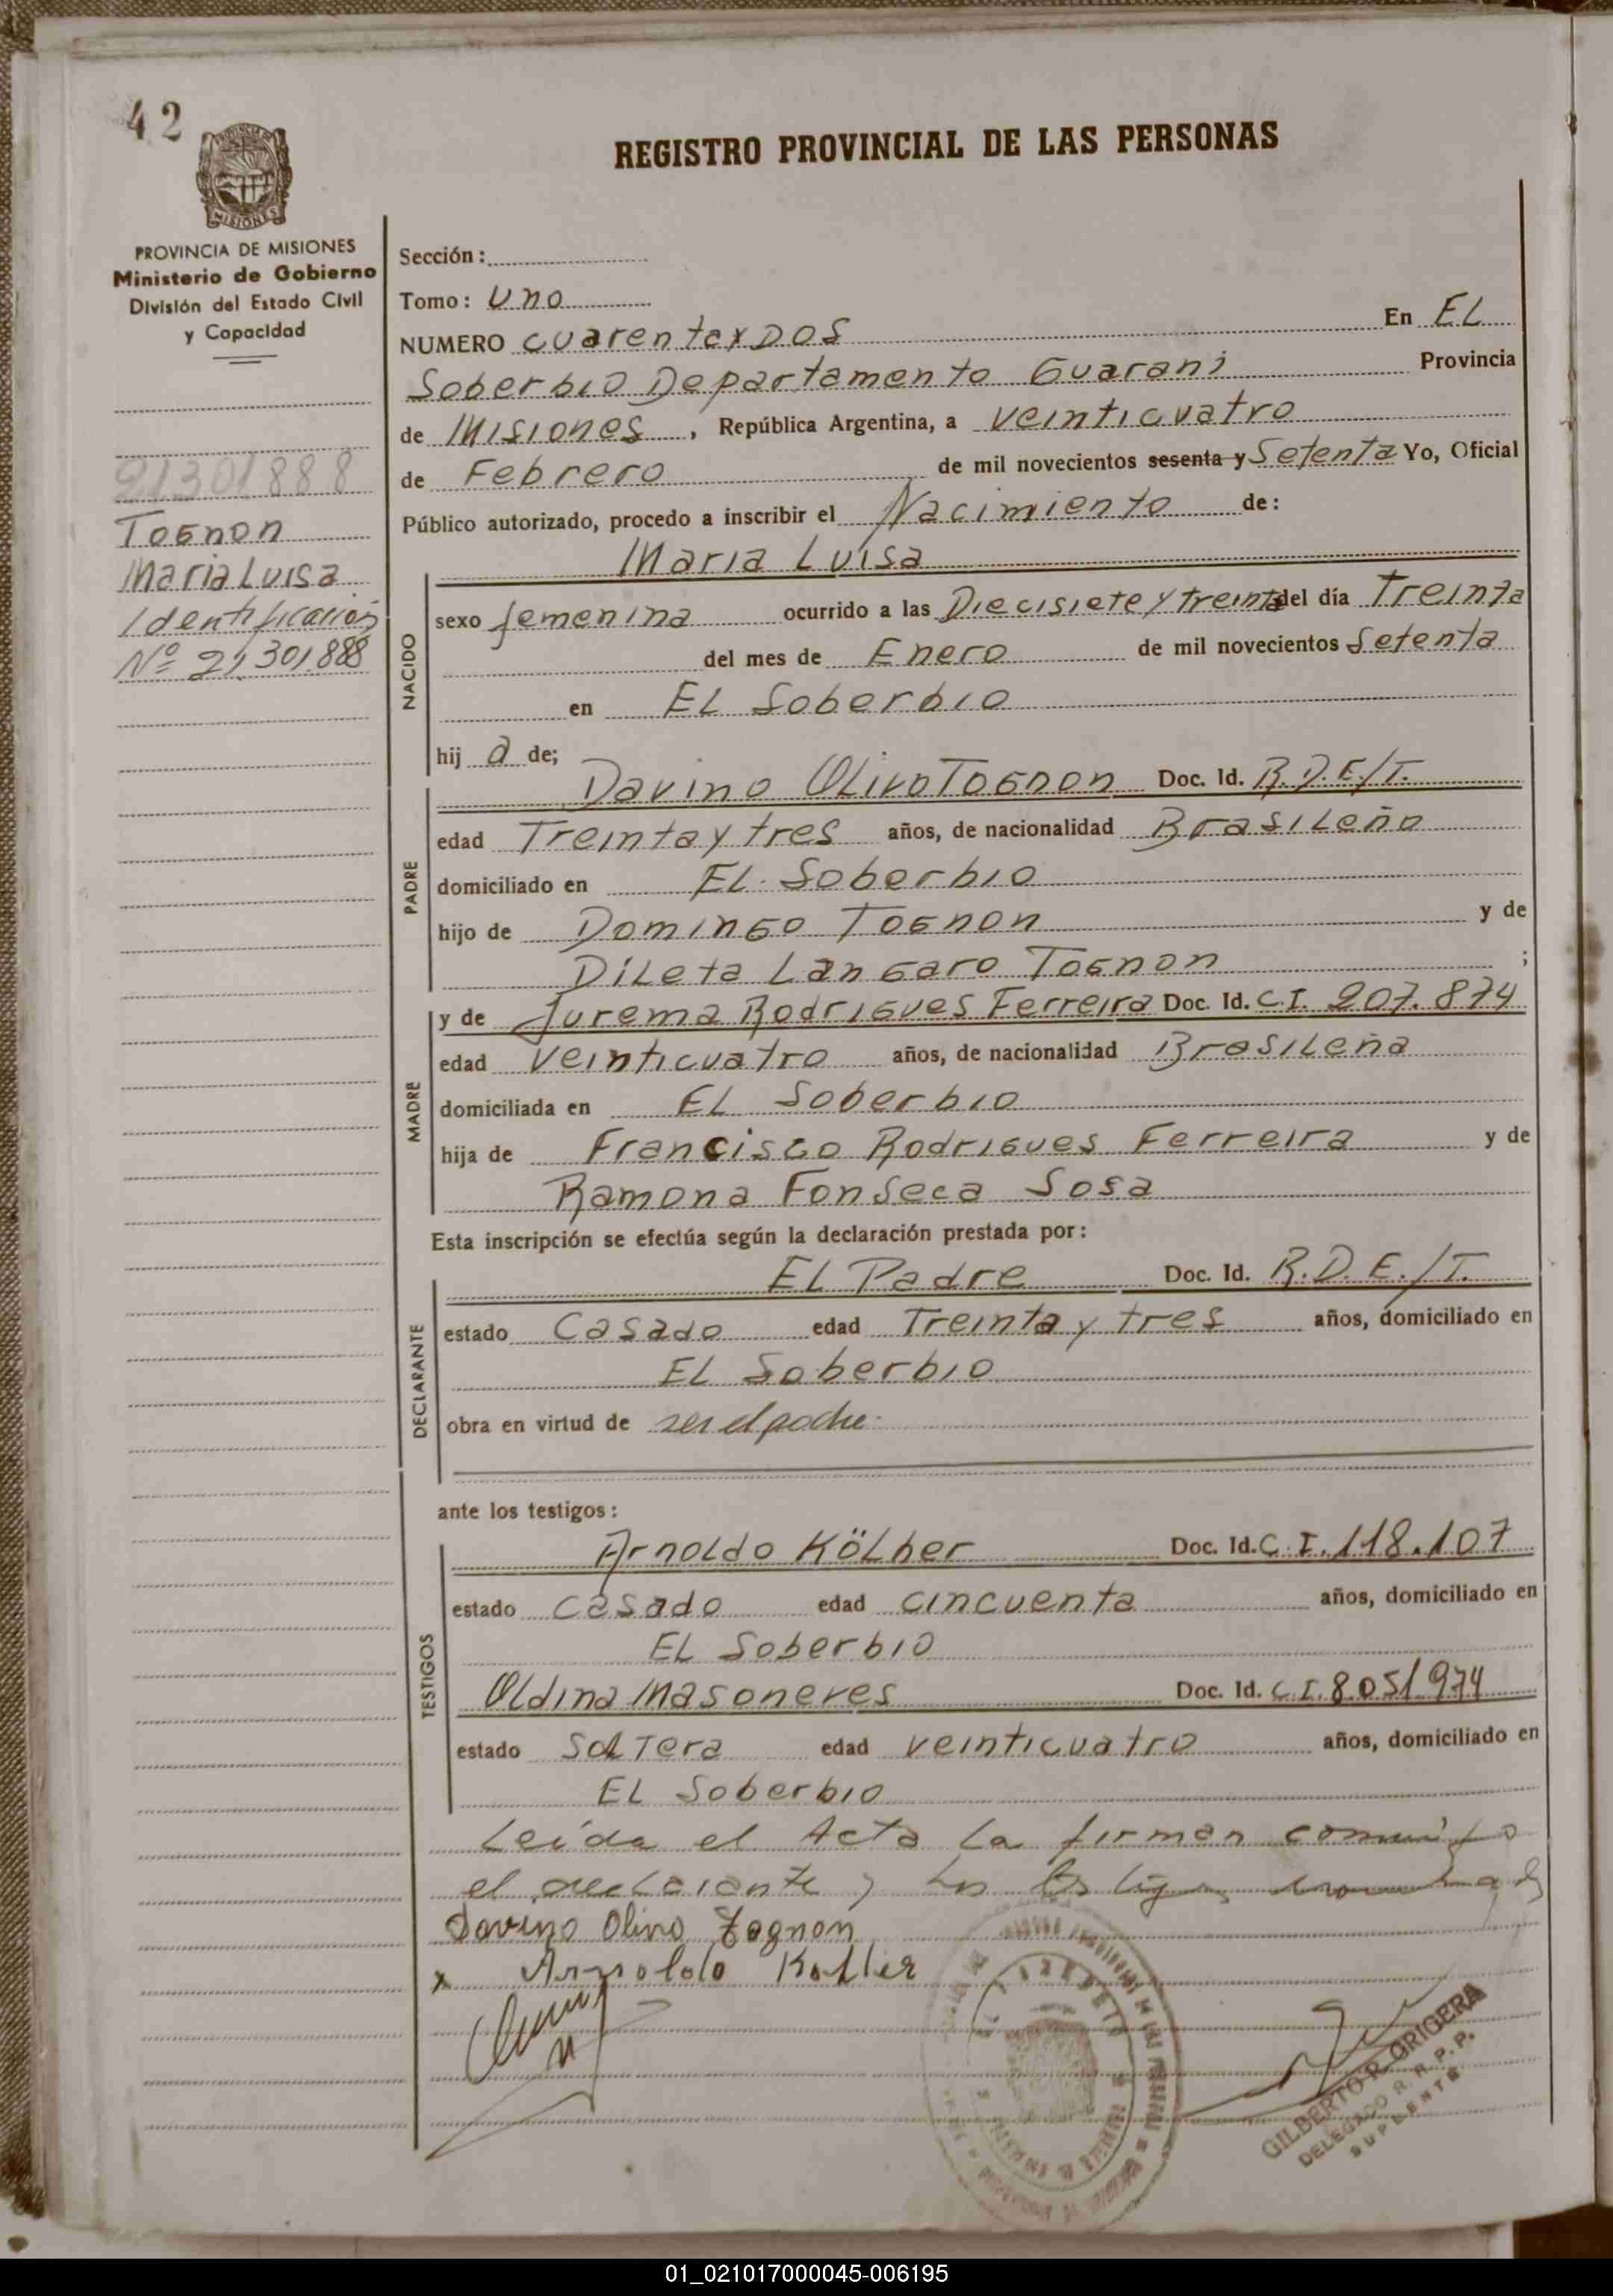 42
MISIONES
PROVINCIA DE MISIONES
Ministerio de Gobierno
División del Estado Civil
y Capacidad
21301888
Tognon
Maria Luisa
Identificación
Nº 21.301.888
REGISTRO PROVINCIAL DE LAS PERSONAS
Sección:
Tomo: Uno
NUMERO cuarenta y Dos En EL
Soberbio Departamento Guarani Provincia
de Misiones, República Argentina, a veinticuatro
de Febrero de mil novecientos sesenta y Setenta Yo, Oficial
Público autorizado, procedo a inscribir el Nacimiento de:
Maria Luisa
NACIDO
sexo femenina ocurrido a las Diecisiete y treinta del día Treinta
del mes de Enero de mil novecientos Setenta
en EL Soberbio
hij a de;
PADRE
Davino Olivo Tognon Doc. Id. R.D.E./T.
edad Treinta y tres años, de nacionalidad Brasileño
domiciliado en EL Soberbio
hijo de Domingo Tognon y de
Dileta Langaro Tognon ;
MADRE
y de Jurema Rodrigues Ferreira Doc. Id. C.I. 207.874
edad veinticuatro años, de nacionalidad Brasileña
domiciliada en EL Soberbio
hija de Francisco Rodrigues Ferreira y de
Ramona Fonseca Sosa
Esta inscripción se efectúa según la declaración prestada por:
DECLARANTE
EL Padre Doc. Id. R.D.E./T.
estado Casado edad Treinta y tres años, domiciliado en
EL Soberbio
obra en virtud de ser el padre
ante los testigos:
TESTIGOS
Arnoldo Kölher Doc. Id. C.I. 118.107
estado casado edad cincuenta años, domiciliado en
EL Soberbio
Oldina Masoneres Doc. Id. C.I. 8051974
estado Soltera edad veinticuatro años, domiciliado en
EL Soberbio
Leída el Acta la firman conmigo
el declarante y los testigos
Davino Olivo Tognon
x Arnoldo Kohler
GILBERTO R. GRIGERA
DELEGADO R. R. P. P.
SUPLENTE
01_021017000045-006195